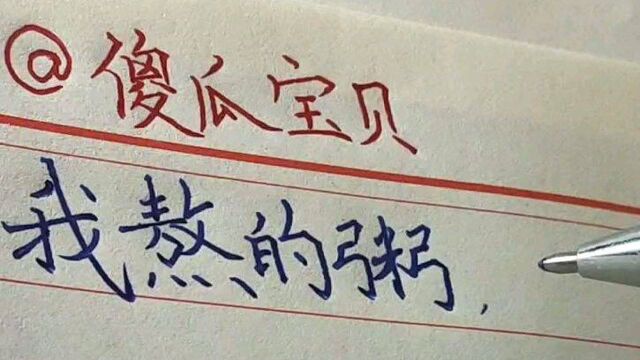 @傻瓜宝贝
我熬的粥,